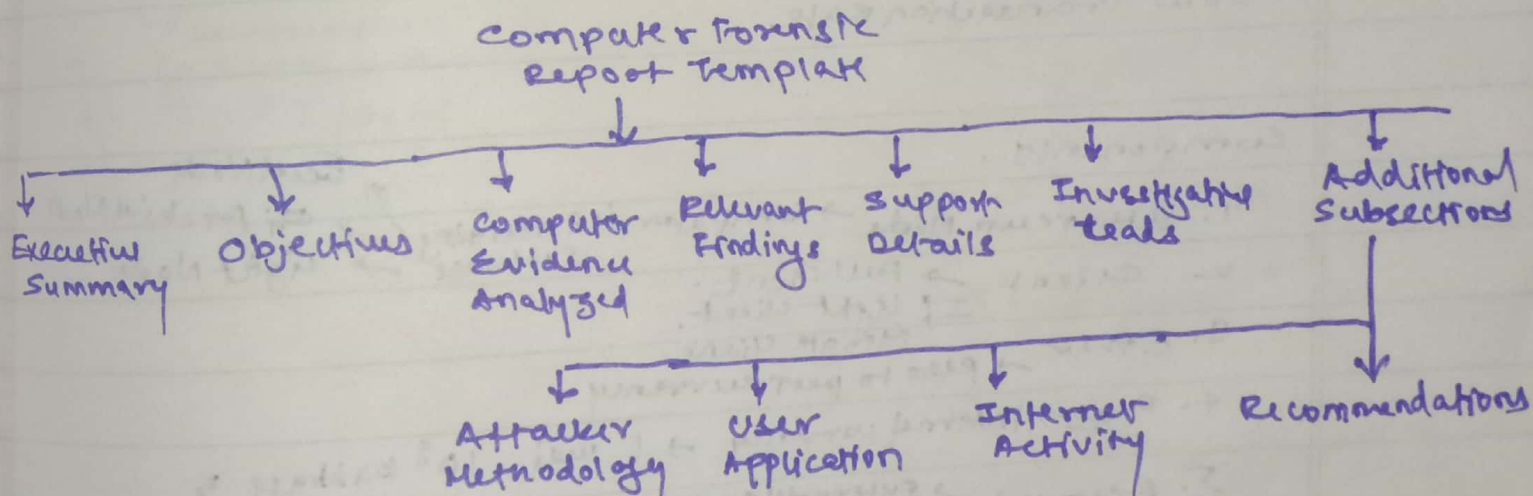 Computer Forensic
Report Template
Executive
Summary
Objectives
Computer
Evidence
Analyzed
Relevant
Findings
Support
Details
Investigative
Leads
Additional
Subsections
Attacker
Methodology
User
Application
Internet
Activity
Recommendations